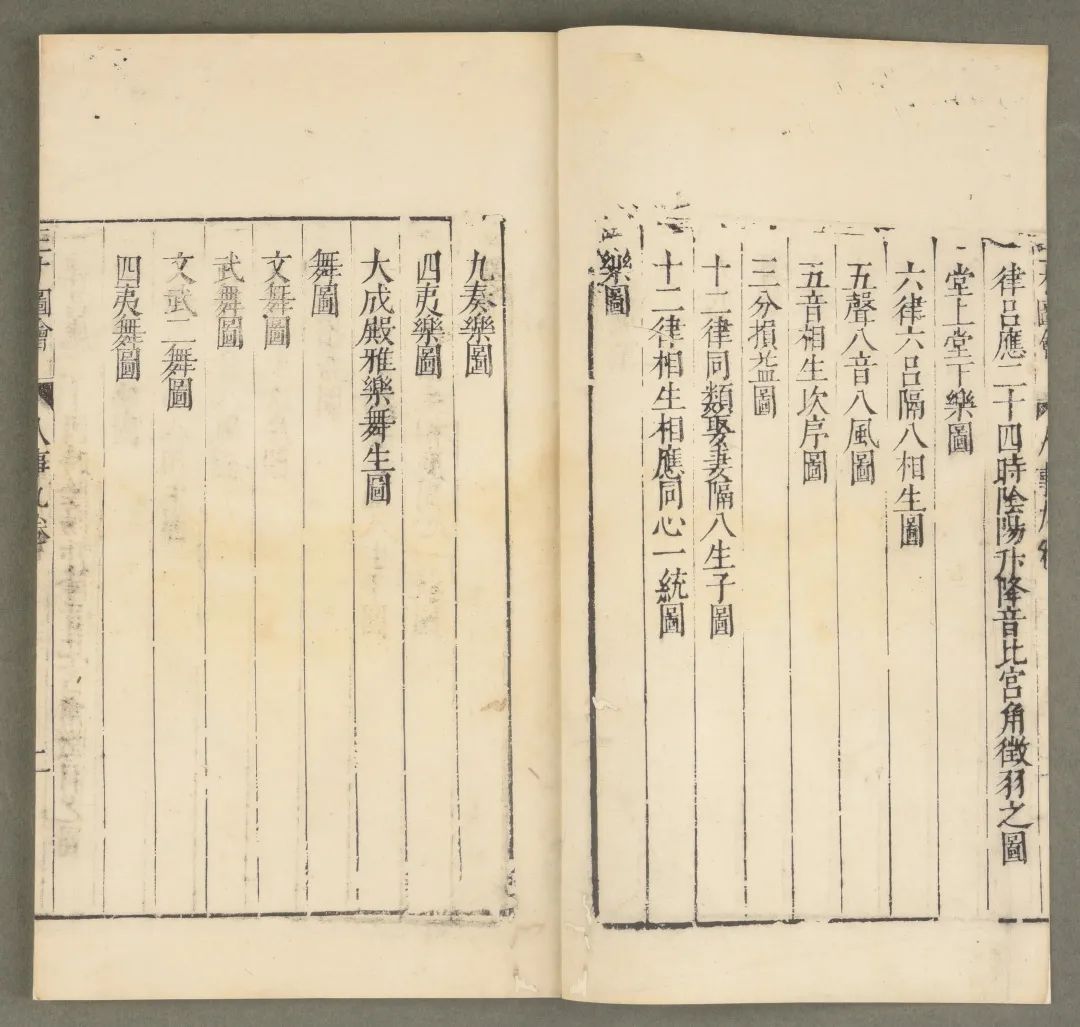 律呂應二十四時陰陽升降音比宮角徵羽之圖
堂上堂下樂圖
六律六呂隔八相生圖
五聲八音八風圖
五音相生次序圖
三分損益圖
十二律同類娶妻隔八生子圖
十二律相生相應同心一統圖
樂圖
九奏樂圖
四夷樂圖
大成殿雅樂舞生圖
舞圖
文舞圖
武舞圖
文武二舞圖
四夷舞圖
圖會 人事九卷 二